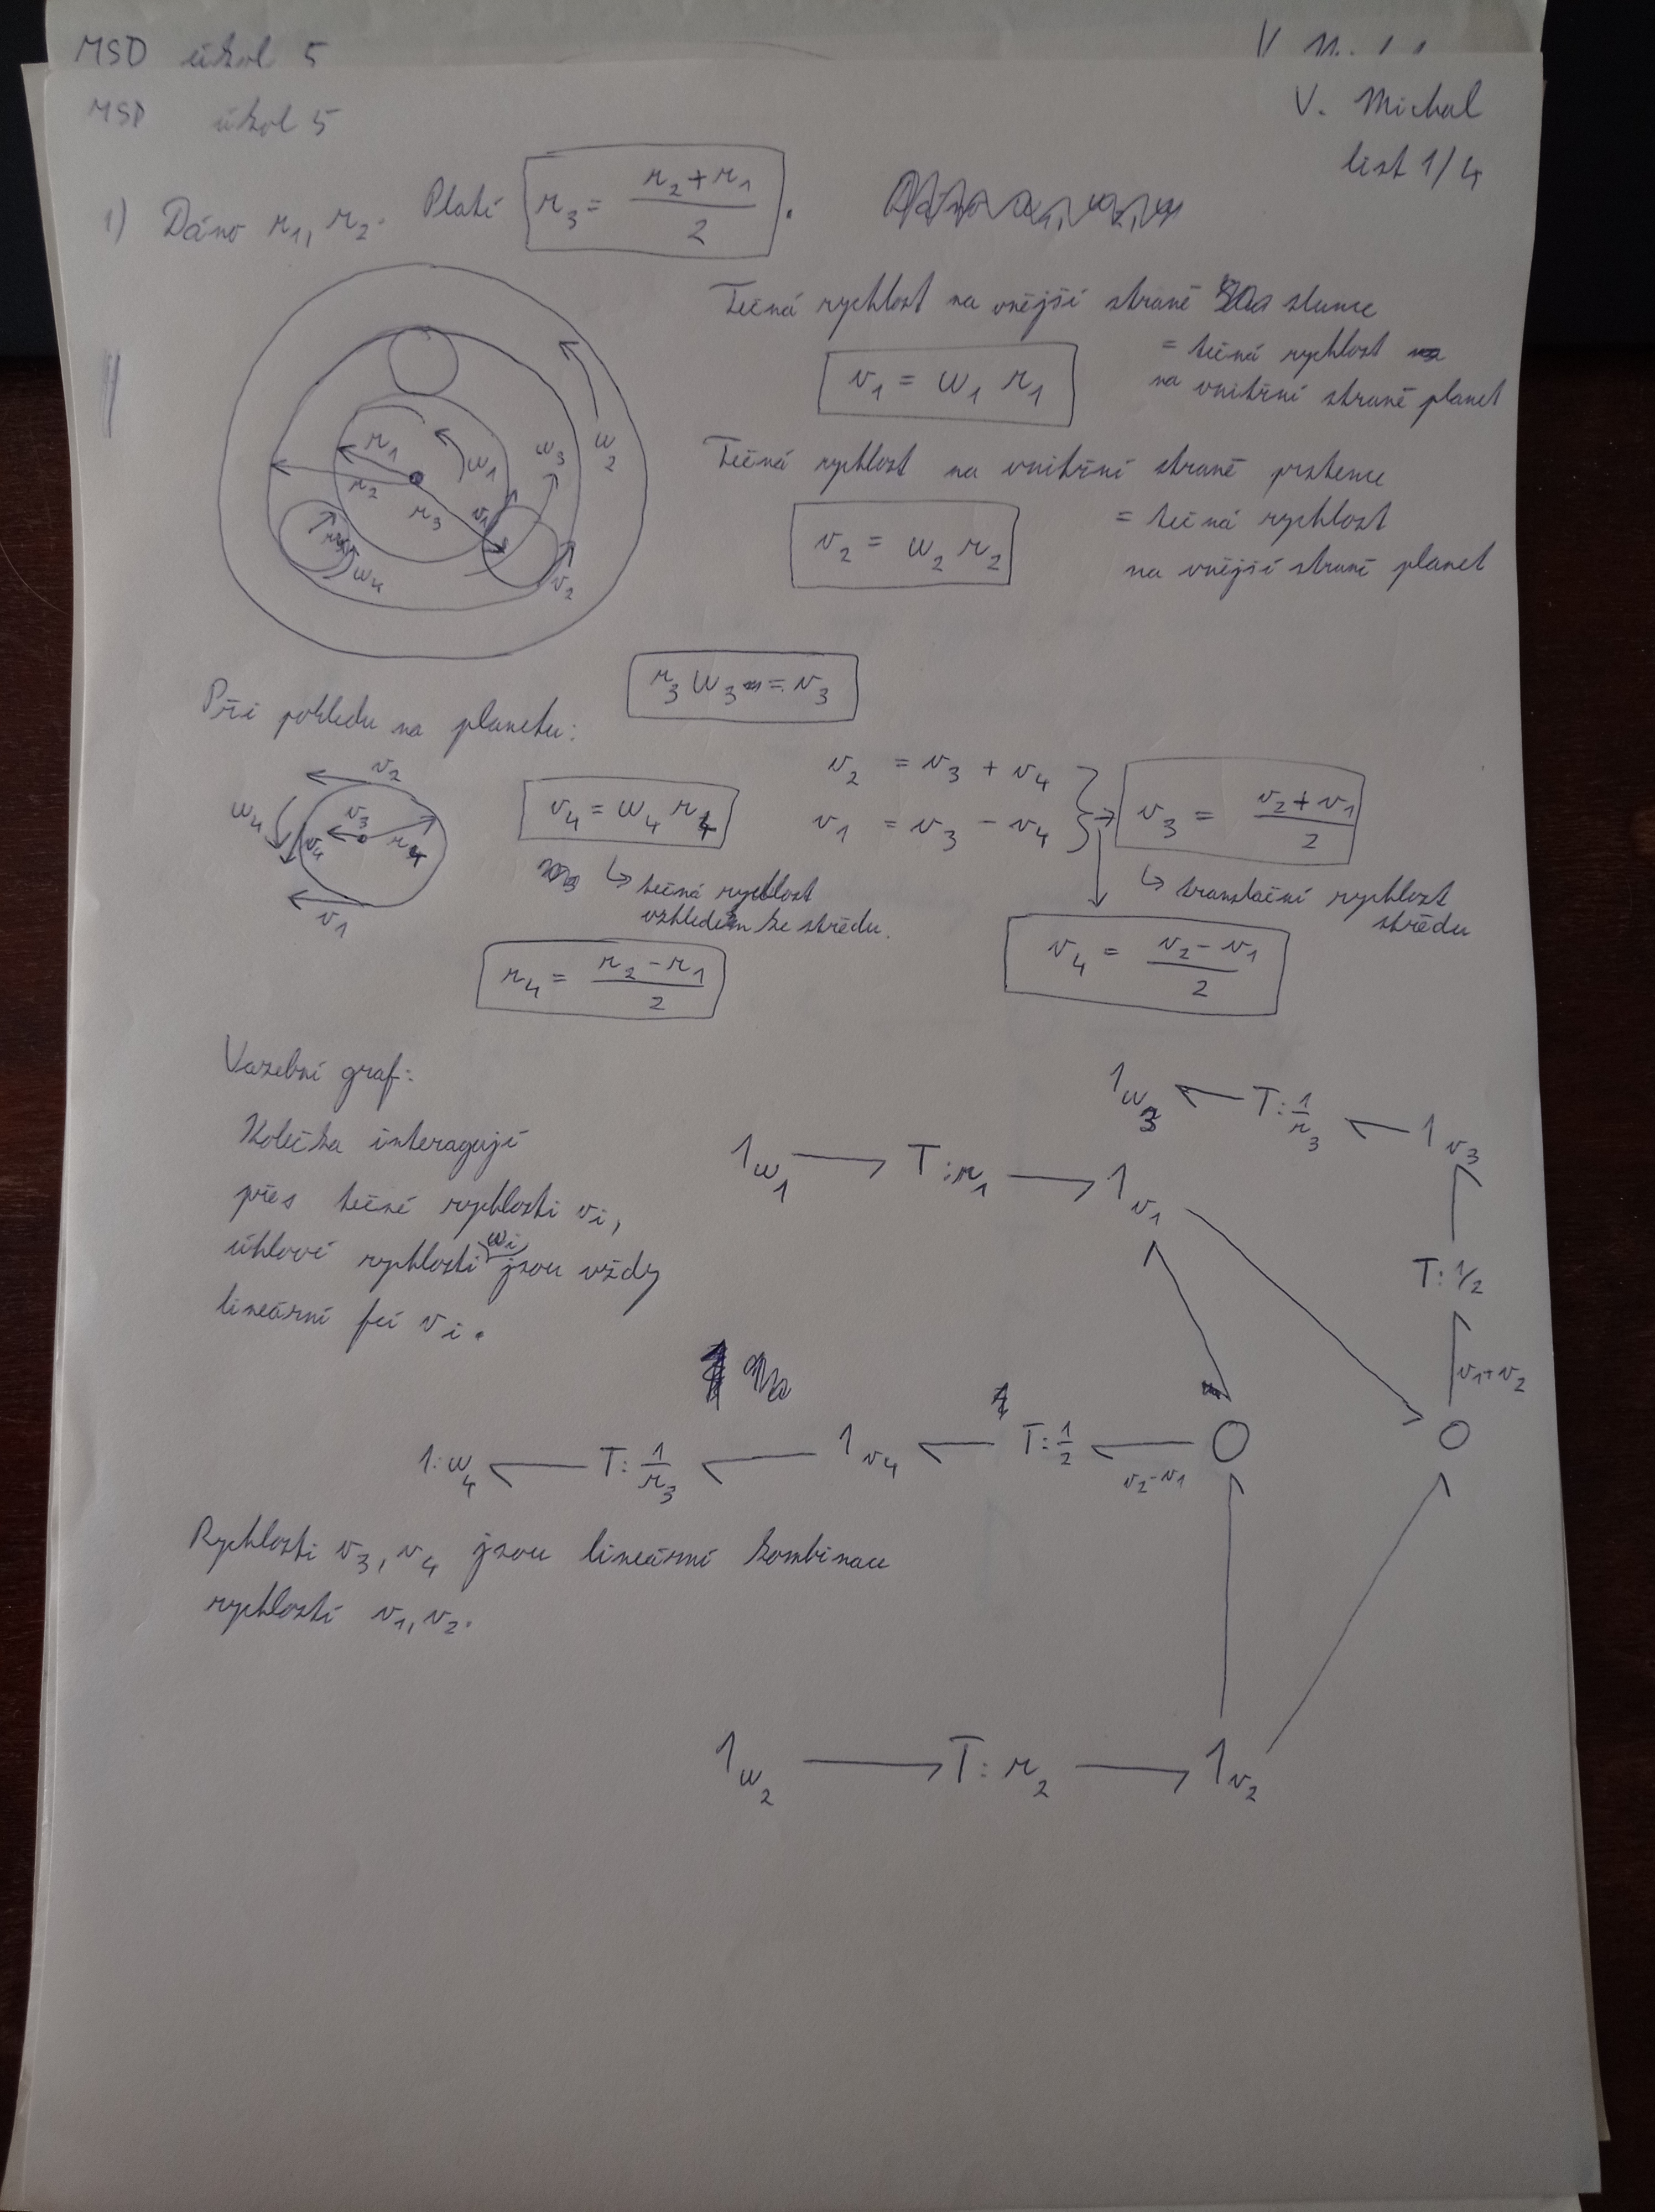 MSD úkol 5
MSD úkol 5
V. Michal
list 1/4
1) Dáno r₁, r₂. Platí r₃ = (r₂ + r₁)/2.
Tečná rychlost na vnější straně slunce
v₁ = ω₁ r₁
= tečná rychlost
na vnitřní straně planet
Tečná rychlost na vnitřní straně prstence
v₂ = ω₂ r₂
= tečná rychlost
na vnější straně planet
r₁
r₂
r₃
ω₁
ω₃
ω₂
v₁
v₂
ω₄
r₃ ω₃ = v₃
Při pohledu na planetu:
v₂
ω₄
v₃
v₄
r₄
v₁
v₄ = ω₄ r₄
↳ tečná rychlost
vzhledem ke středu.
r₄ = (r₂ - r₁)/2
v₂ = v₃ + v₄
v₁ = v₃ - v₄
→ v₃ = (v₂ + v₁)/2
↳ translační rychlost
středu
v₄ = (v₂ - v₁)/2
Vazební graf:
Kolečka interagují
přes tečné rychlosti vᵢ,
úhlové rychlosti ωᵢ jsou vždy
lineární fcí vᵢ.
1ω₃ ← T: 1/r₃ ← 1v₃
1ω₁ → T: r₁ → 1v₁
T: 1/2
v₁+v₂
1: ω₄ ← T: 1/r₃ ← 1v₄ ← T: 1/2 ← 0 0
v₂-v₁
Rychlosti v₃, v₄ jsou lineární kombinace
rychlostí v₁, v₂.
1ω₂ → T: r₂ → 1v₂